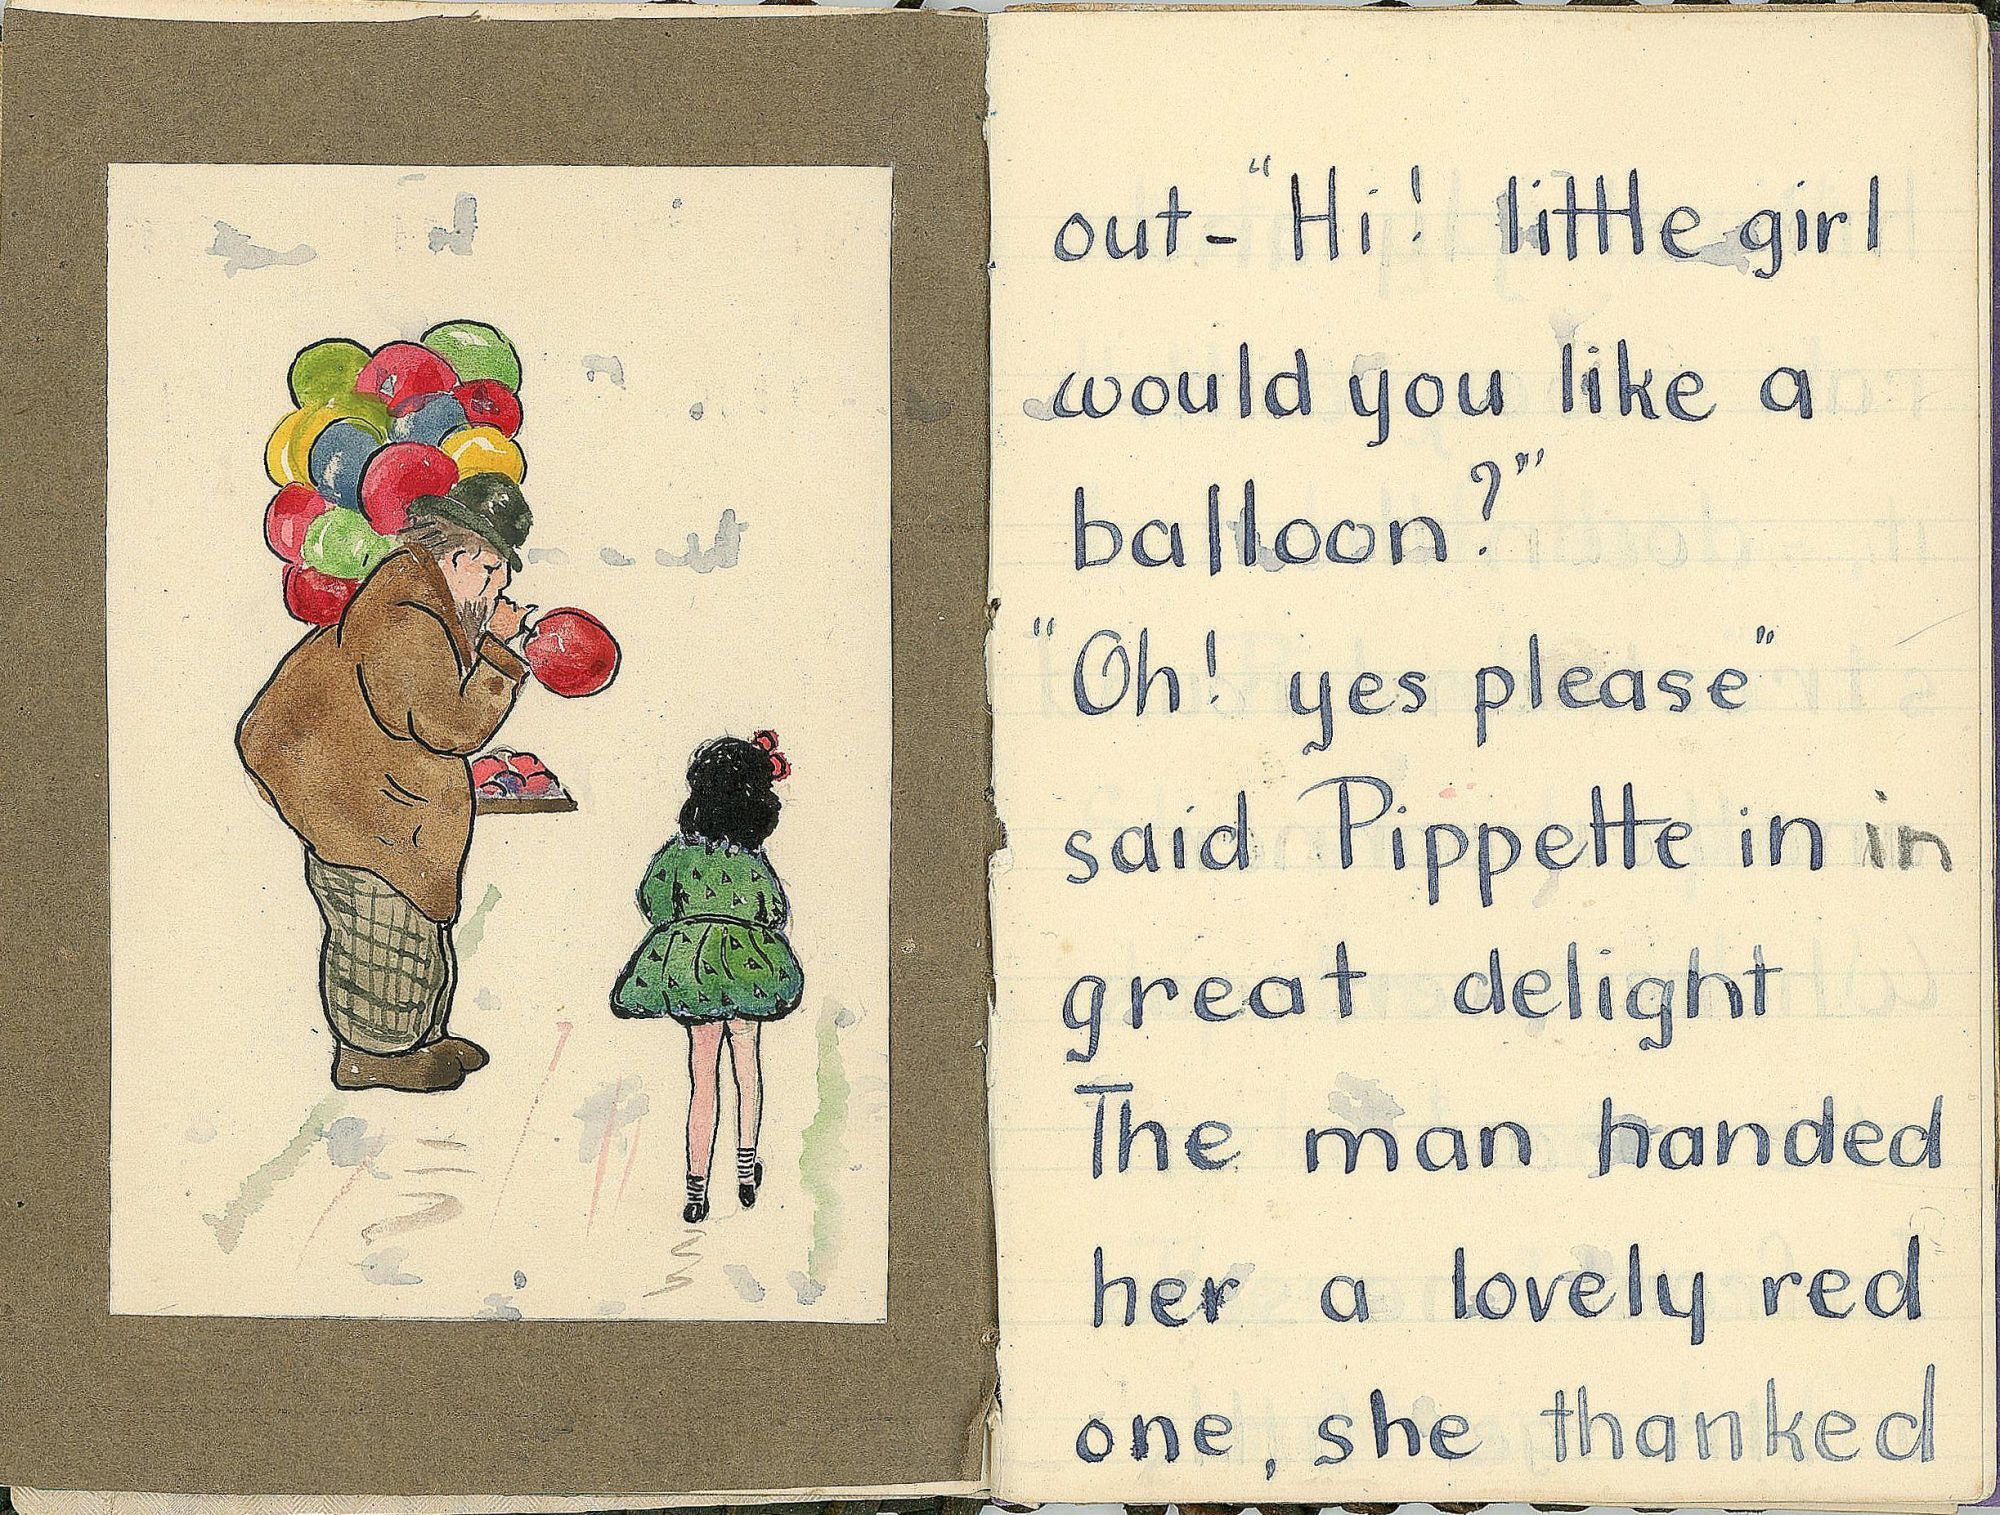 out-"Hi! little girl
would you like a
balloon?"
"Oh! yes please"
said Pippette in in
great delight
The man handed
her a lovely red
one, she thanked